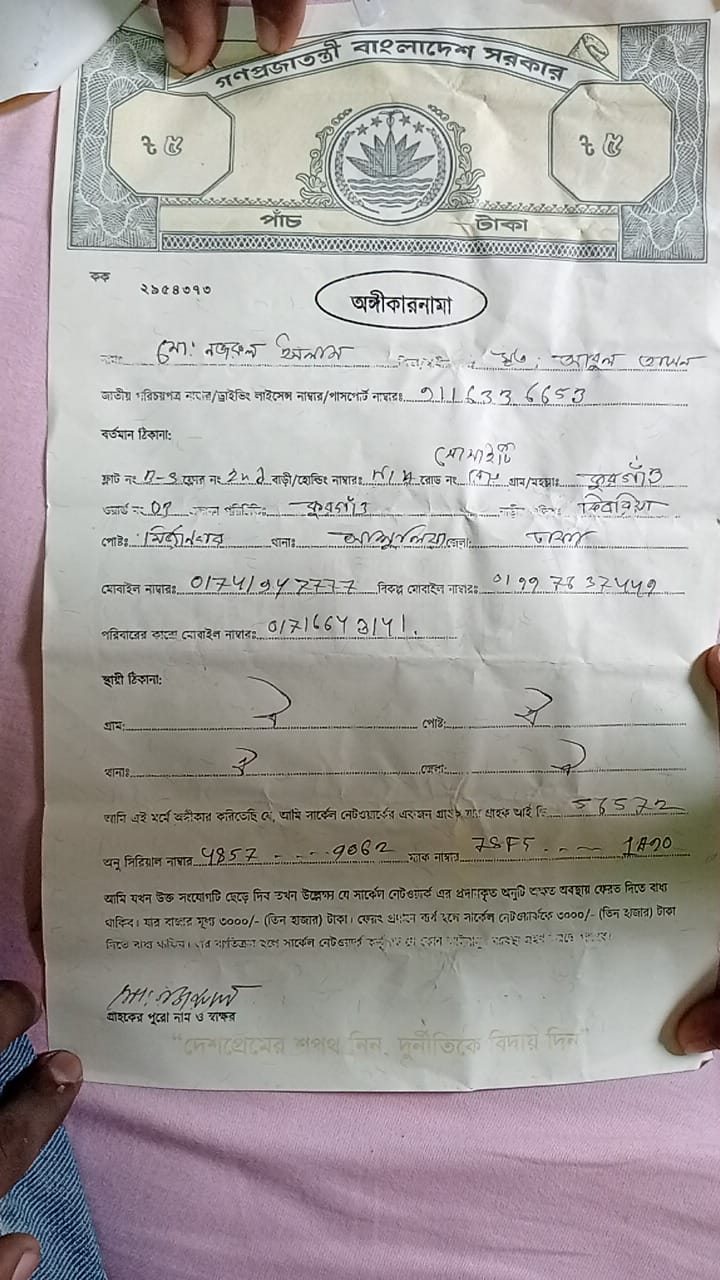 গণপ্রজাতন্ত্রী বাংলাদেশ সরকার
৳ ৫ ৳ ৫
পাঁচ টাকা
কক ২৯৫৪৩৭৩
অঙ্গীকারনামা
নাম: মো: নজরুল ইসলাম মৃত: আবুল
জাতীয় পরিচয়পত্র নাম্বার/ড্রাইভিং লাইসেন্স নাম্বার/পাসপোর্ট নাম্বারঃ 9116336653
বর্তমান ঠিকানা:
সোসাইটি
ফ্লাট নং B-3 ফ্লোর নং 2nd বাড়ী/হোল্ডিং নাম্বারঃ N/A রোড নং গ্রাম/মহল্লাঃ কুরগাঁও
ওয়ার্ড নং 07 কুরগাঁও
পোষ্টঃ মির্জানগর থানাঃ আশুলিয়া জেলা: ঢাকা
মোবাইল নাম্বারঃ 01741947777 বিকল্প মোবাইল নাম্বারঃ 01997837449
পরিবারের কারো মোবাইল নাম্বারঃ 01716643141.
স্থায়ী ঠিকানা:
গ্রাম: পোষ্ট:
থানাঃ জেলা:
আমি এই মর্মে অঙ্গীকার করিতেছি যে, আমি সার্কেল নেটওয়ার্কের একজন গ্রাহক যার গ্রাহক আই ডি 56572
অনু সিরিয়াল নাম্বার 4857 - - - - 9062 ম্যাক নাম্বার 78F5 - - - 1A90
আমি যখন উক্ত সংযোগটি ছেড়ে দিব তখন উল্লেখ্য যে সার্কেল নেটওয়ার্ক এর প্রদানকৃত অনুটি অক্ষত অবস্থায় ফেরত দিতে বাধ্য
থাকিব। যার বাজার মূল্য ৩০০০/- (তিন হাজার) টাকা। ফেরত প্রদানে ব্যর্থ হলে সার্কেল নেটওয়ার্ককে ৩০০০/- (তিন হাজার) টাকা
দিতে বাধ্য থাকিব। এর ব্যতিক্রম হলে সার্কেল নেটওয়ার্ক যে কোন
মো: নজরুল
গ্রাহকের পুরো নাম ও স্বাক্ষর
"দেশপ্রেমের শপথ নিন, দুর্নীতিকে বিদায় দিন"